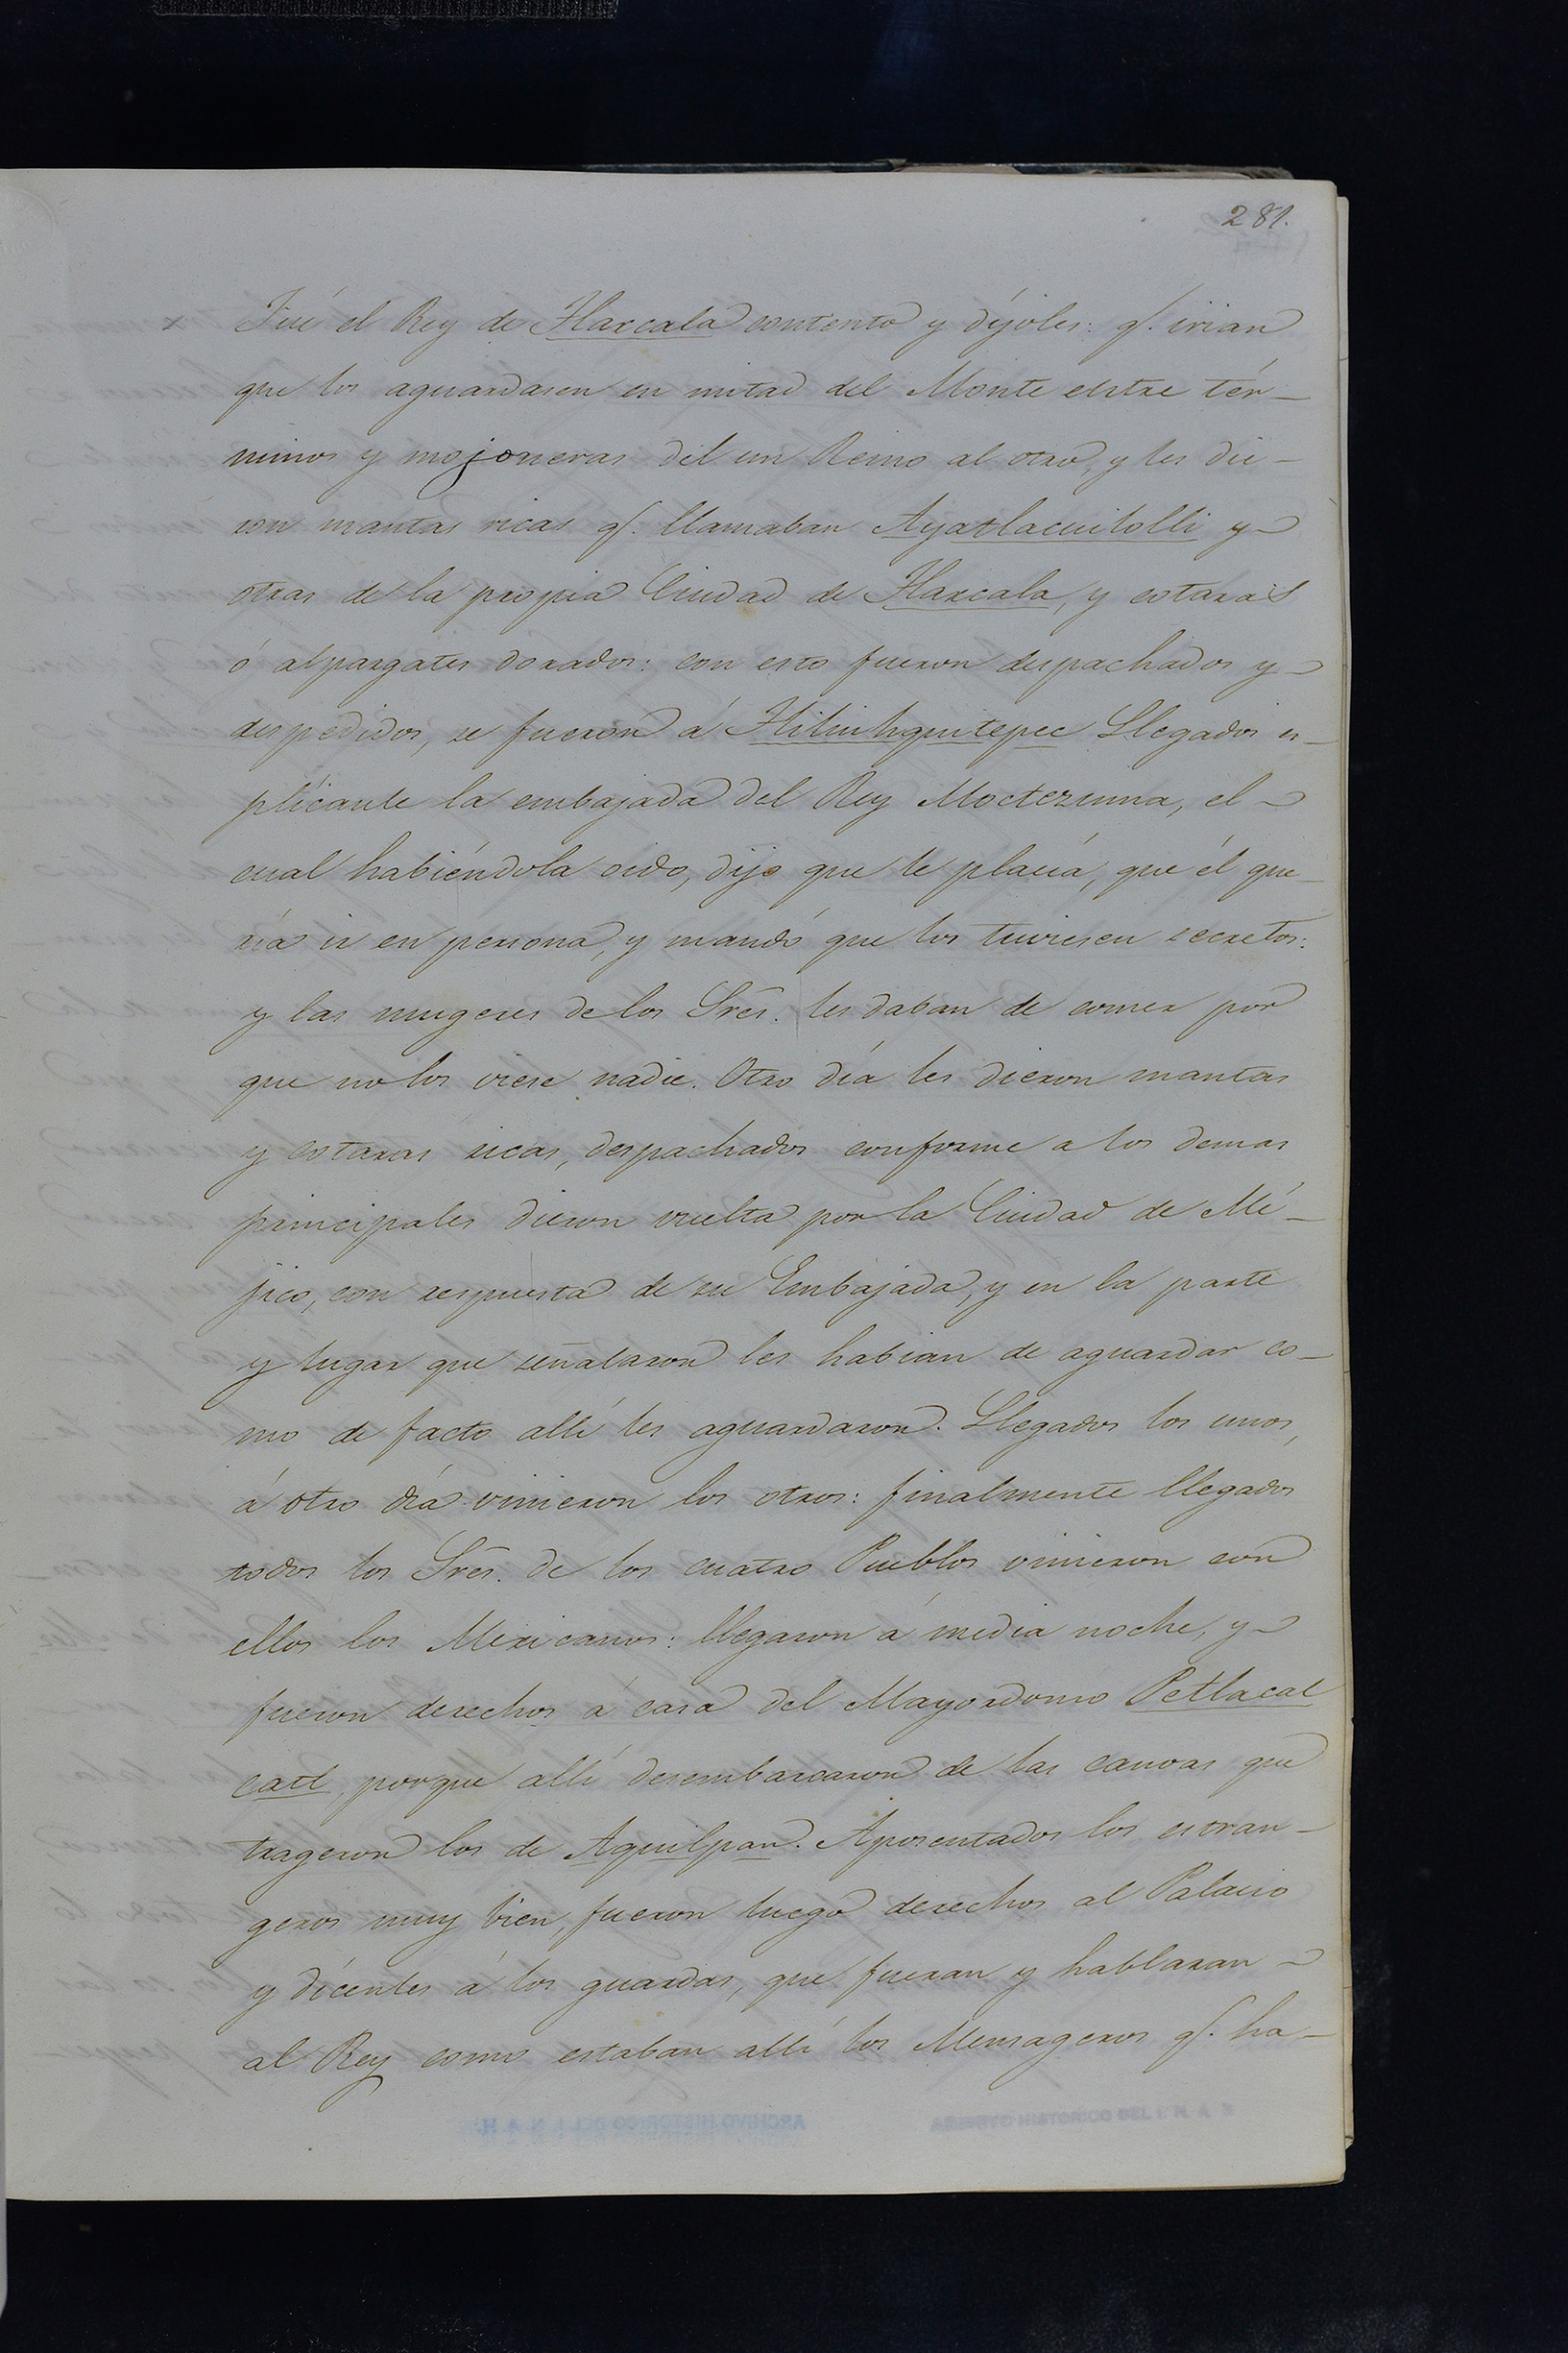 281.
x Fué el Rey de Tlaxcala contento y díjoles: q.e irian
que los aguardasen en mitad del Monte entre tér-
minos y mojoneras del un Reino al otro, y les die-
ron mantas ricas q.e llamaban Ayatlacuilolli y
otras de la propia Ciudad de Tlaxcala, y cotaras
ó alpargates dorados: con esto fueron despachados y
despedidos, se fueron á Tliliuhquitepec Llegados es-
plícanle la embajada del Rey Moctezuma, el
cual habiéndola oido, dijo que le placía, que él que-
ría ir en persona, y mandó que los tuviesen secretos:
y las mugeres de los Sres. les daban de comer por
que no los viese nadie. Otro día les dieron mantas
y cotaras ricas, despachados conforme a los demas
principales dieron vuelta por la Ciudad de Mé-
jico, con respuesta de su Embajada, y en la parte
y lugar que señalaron les habian de aguardar co-
mo de facto allí les aguardaron. Llegados los unos,
á otro día vinieron los otros: finalmente llegados
todos los Sres. de los cuatro Pueblos vinieron con
ellos los Mexicanos: llegaron á media noche, y
fueron derechos á casa del Mayordomo Petlacal
catl, porque allí desembarcaron de las canoas que
trageron los de Aquilpan. Aposentados los estran-
geros muy bien, fueron luego derechos al Palacio
y dícenles á los guardas, que fueran y hablaran
al Rey como estaban allí los Mensageros q.e ha-
ARCHIVO HISTORICO DEL I. N. A. H.
ARCHIVO HISTORICO DEL I. N. A. H.